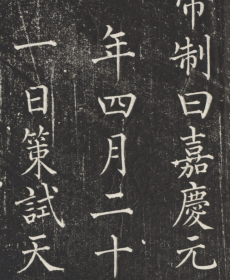 帝制曰嘉慶元
年四月二十
一日策試天